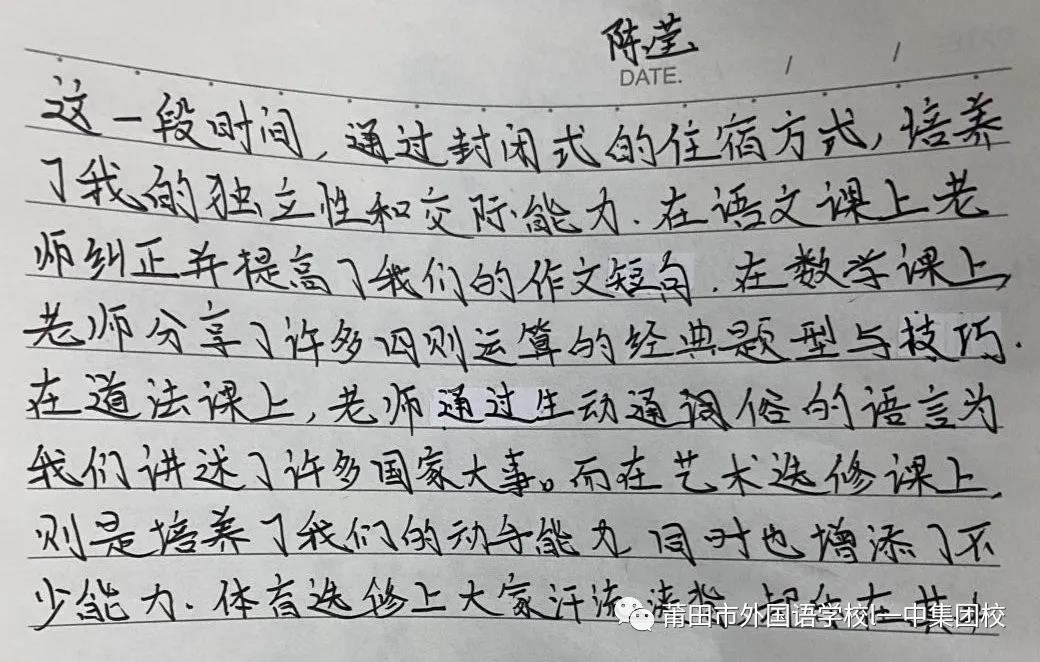 陈莹
DATE. / /
这一段时间，通过封闭式的住宿方式，培养
了我的独立性和交际能力．在语文课上老
师纠正并提高了我们的作文短句．在数学课上，
老师分享了许多四则运算的经典题型与技巧．
在道法课上，老师通过生动通词俗的语言为
我们讲述了许多国家大事。而在艺术选修课上，
则是培养了我们的动手能力 同时也增添了不
少能力．体育选修上大家汗流浃背
莆田市外国语学校I一中集团校